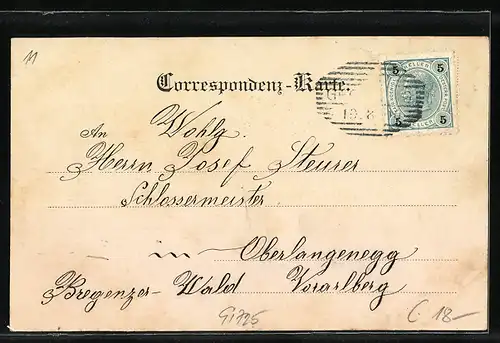 11
5 HELLER 5
Correspondenz-Karte.
19.8
5 HELLER 5
An Wohlg.
Herrn Josef Steurer
Schlossermeister
in Oberlangenegg
Bregenzer-Wald Vorarlberg
G1725
C. 18-